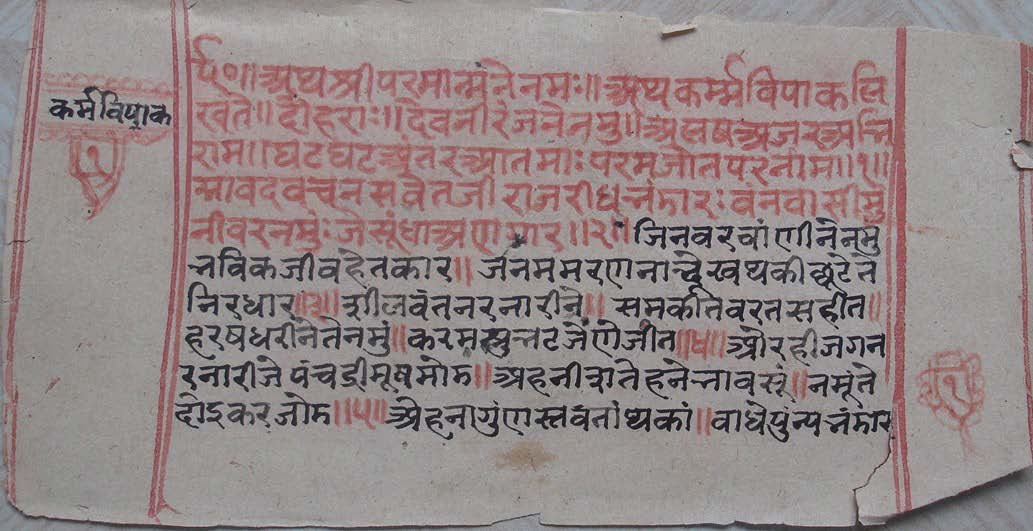 कर्मविपाक
॥अथ श्रीपरमात्मनेनमः॥ अथ कर्म्मविपाक लि
खंते॥ दोहराः॥ देवनीरंजनेनमु॥ अलषअजरअभि
राम॥ घटघटअंतरआतमाः परमजोतपरनाम॥१॥
भावदवचनसर्वतजी राजरीधभंडारः वंनवासीमु
नीवरनमुंः जेसूंधाअणगार॥२॥ जिनवरवांणीनेनमु
भविकजीवहेतकार॥ जंनममरणना थकी छूटेते
निरधार॥३॥ शीलवंतनरनारीने॥ समकीतवरतसहीत॥
हरषधरीनेतेनमुं॥ करमसुभटजेंणेजीत॥४॥ ओरहीजगन
रनारीजे पंचइंद्रीमूषमोड॥ अहनीशतेहनेभावसूं॥ नमूंते
दोइकरजोड॥५॥ अेहनागुंणस्तवतांथकां॥ वाधेपुंन्यभंडार